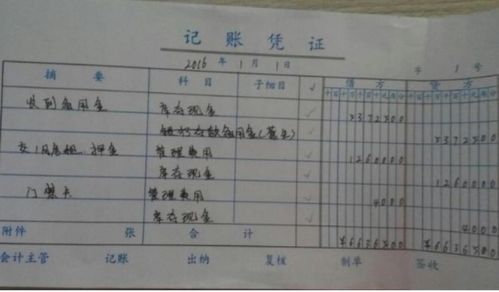 记账凭证
2016年1月1日 字1号
摘要 科目 子细目 √ 借方 贷方
收到备用金 库存现金 √ 5372500
备用金 5372500
交1月房租、押金 管理费用 √ 1260000
库存现金 √ 1260000
门禁卡 管理费用 √ 4000
库存现金 √ 4000
附件 张 合计 ¥6636500 ¥6636500
会计主管 记账 出纳 复核 制单 签收